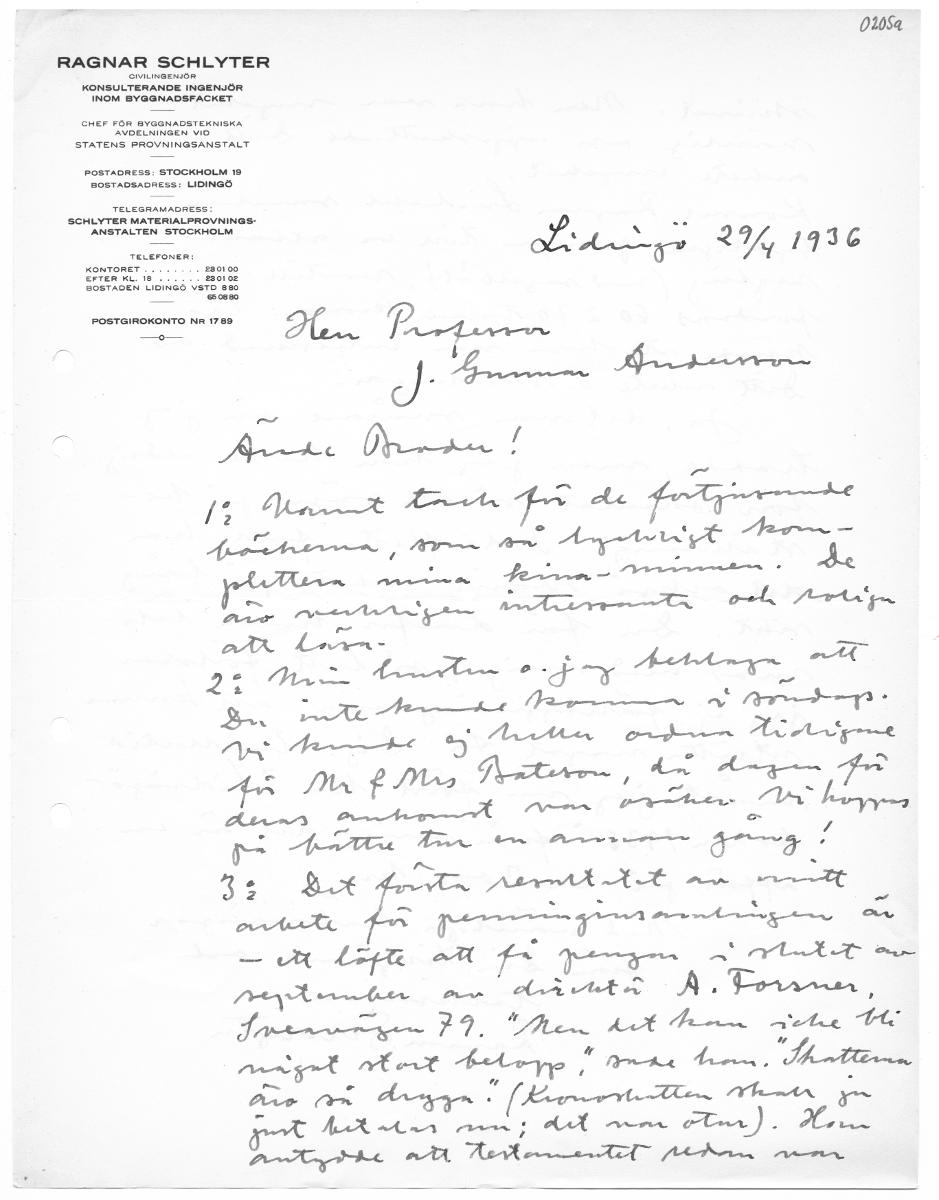 0205a
RAGNAR SCHLYTER
CIVILINGENJÖR
KONSULTERANDE INGENJÖR
INOM BYGGNADSFACKET
CHEF FÖR BYGGNADSTEKNISKA
AVDELNINGEN VID
STATENS PROVNINGSANSTALT
POSTADRESS: STOCKHOLM 19
BOSTADSADRESS: LIDINGÖ
TELEGRAMADRESS:
SCHLYTER MATERIALPROVNINGS-
ANSTALTEN STOCKHOLM
TELEFONER:
KONTORET ........ 23 01 00
EFTER KL. 18 ...... 23 01 02
BOSTADEN LIDINGÖ VSTD 8 80
65 08 80
POSTGIROKONTO NR 17 89
Lidingö 29/4 1936
Herr Professor
J. Gunnar Andersson
Ärade Broder!
1o Varmt tack för de förtjusande
böckerna, som så lyckligt kom-
plettera mina kina-minnen. De
äro verkligen intressanta och roliga
att läsa.
2o Min hustru o. jag beklaga att
Du inte kunde komma i söndags.
Vi kunde ej heller ordna tidigare
för Mr & Mrs Bateson, då dagen för
deras ankomst var osäker. Vi hoppas
på bättre tur en annan gång!
3o Det första resultatet av mitt
arbete för penninginsamlingen är
— ett löfte att få pengar i slutet av
september av direktör A. Forsner,
Sveavägen 79. "Men det kan icke bli
något stort belopp," sade han. "Skatterna
äro så dryga". (Kronoskatten skall ju
just betalas nu; det var otur). Han
antydde att testamentet redan var